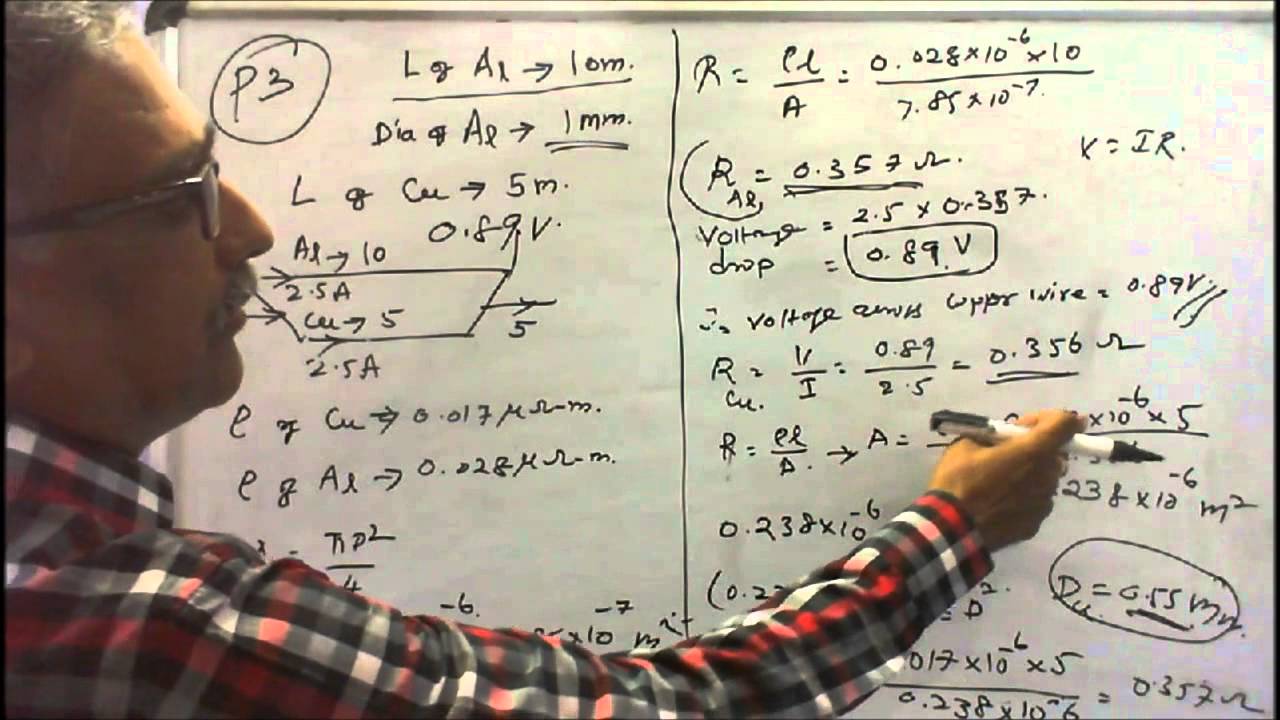 P3
L of Al → 10m.
Dia of Al → 1mm.
L of Cu → 5m.
0.89V.
Al → 10
2.5A
Cu → 5
5
2.5A
ρ of Cu → 0.017μΩ-m.
ρ of Al → 0.028μΩ-m.
πD²
4
-6
×10⁻⁷ m²
R = ρl/A = 0.028×10⁻⁶×10 / 7.85×10⁻⁷
V = IR.
R Al = 0.357Ω.
Voltage drop = 2.5 × 0.357.
= 0.89 V
∴ Voltage across copper wire = 0.89V.
R Cu. = V/I = 0.89/2.5 = 0.356 Ω
R = ρl/A. → A = ×10⁻⁶×5
238×10⁻⁶ m²
0.238×10⁻⁶
D²
D Cu. = 0.55 mm.
017×10⁻⁶×5 / 0.238×10⁻⁶ = 0.357Ω